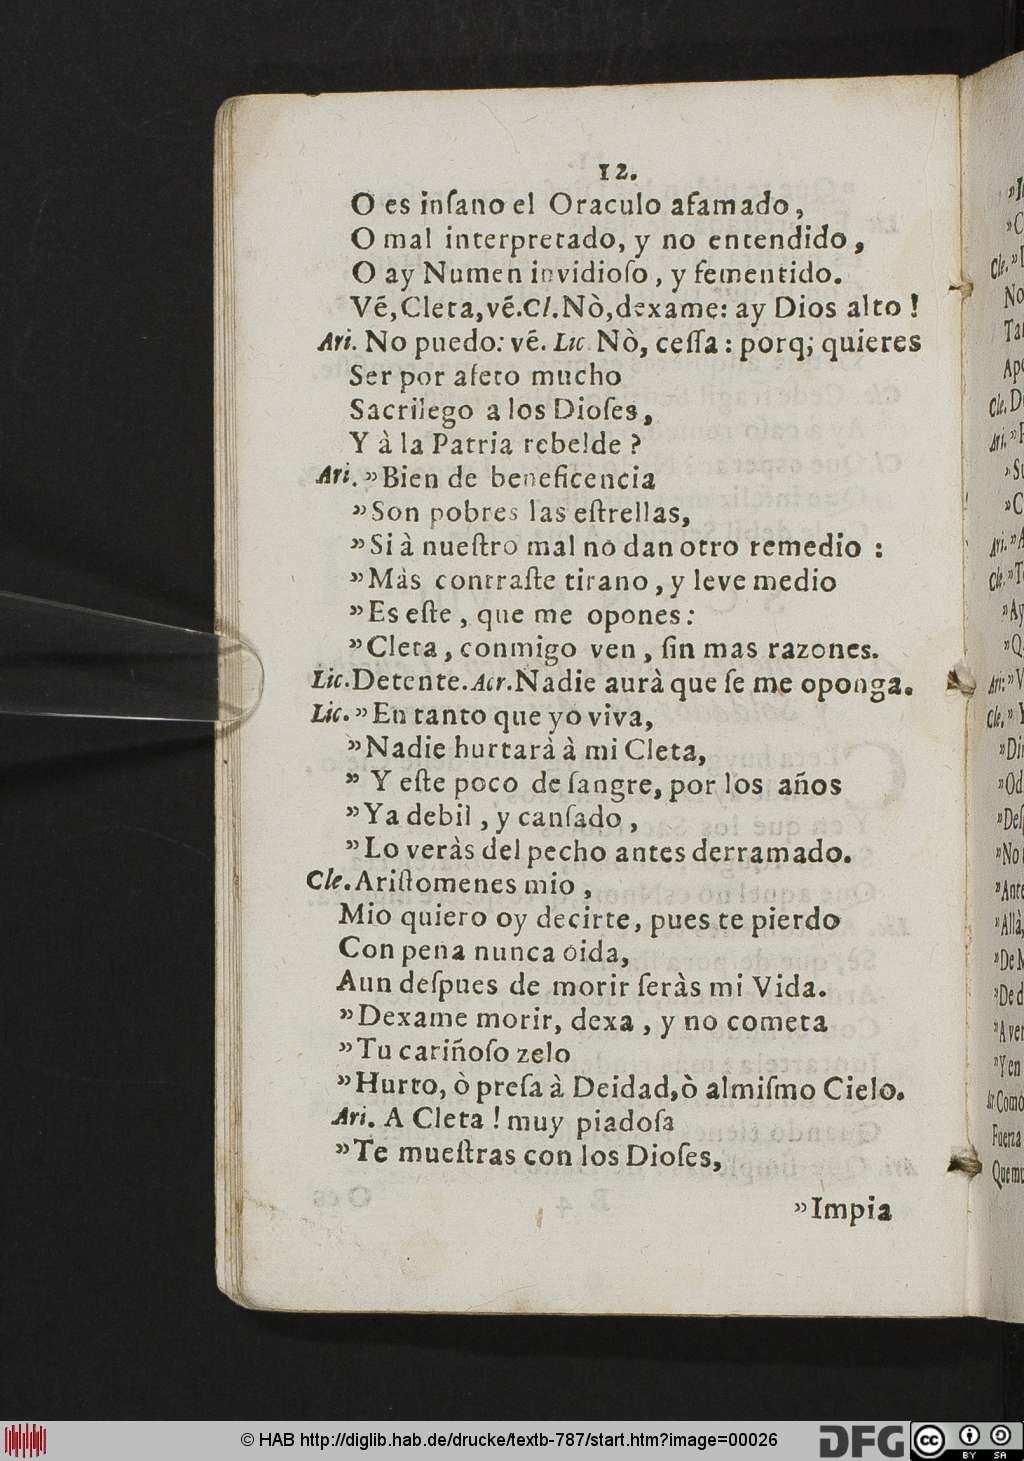 12.
O es inſano el Oraculo afamado,
O mal interpretado, y no entendido,
O ay Numen invidioſo, y fementido.
Vé, Cleta, vé. Cl. Nò, dexame: ay Dios alto!
Ari. No puedo: vé. Lic. Nò, ceſſa: porq; quieres
Ser por afeto mucho
Sacrilego a los Dioſes,
Y à la Patria rebelde?
Ari. ”Bien de beneficencia
”Son pobres las eſtrellas,
”Si à nueſtro mal no dan otro remedio:
”Màs contraſte tirano, y leve medio
”Es eſte, que me opones:
”Cleta, conmigo ven, ſin mas razones.
Lic. Detente. Acr. Nadie aurà que ſe me oponga.
Lic. ”En tanto que yo viva,
”Nadie hurtarà à mi Cleta,
”Y eſte poco de ſangre, por los años
”Ya debil, y canſado,
”Lo veràs del pecho antes derramado.
Cle. Ariſtomenes mio,
Mio quiero oy decirte, pues te pierdo
Con pena nunca óida,
Aun deſpues de morir ſeràs mi Vida.
”Dexame morir, dexa, y no cometa
”Tu cariñoſo zelo
”Hurto, ò preſa à Deidad, ò al miſmo Cielo.
Ari. A Cleta! muy piadoſa
”Te mueſtras con los Dioſes,
”Impia
© HAB http://diglib.hab.de/drucke/textb-787/start.htm?image=00026
DFG
cc BY SA